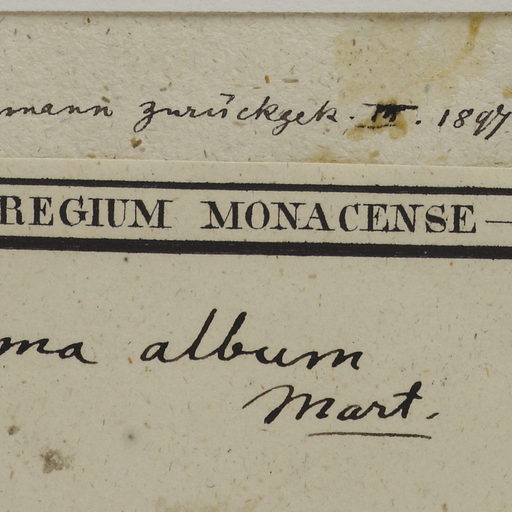 mann zurückgek. III. 1897
REGIUM MONACENSE —
ma album
Mart.